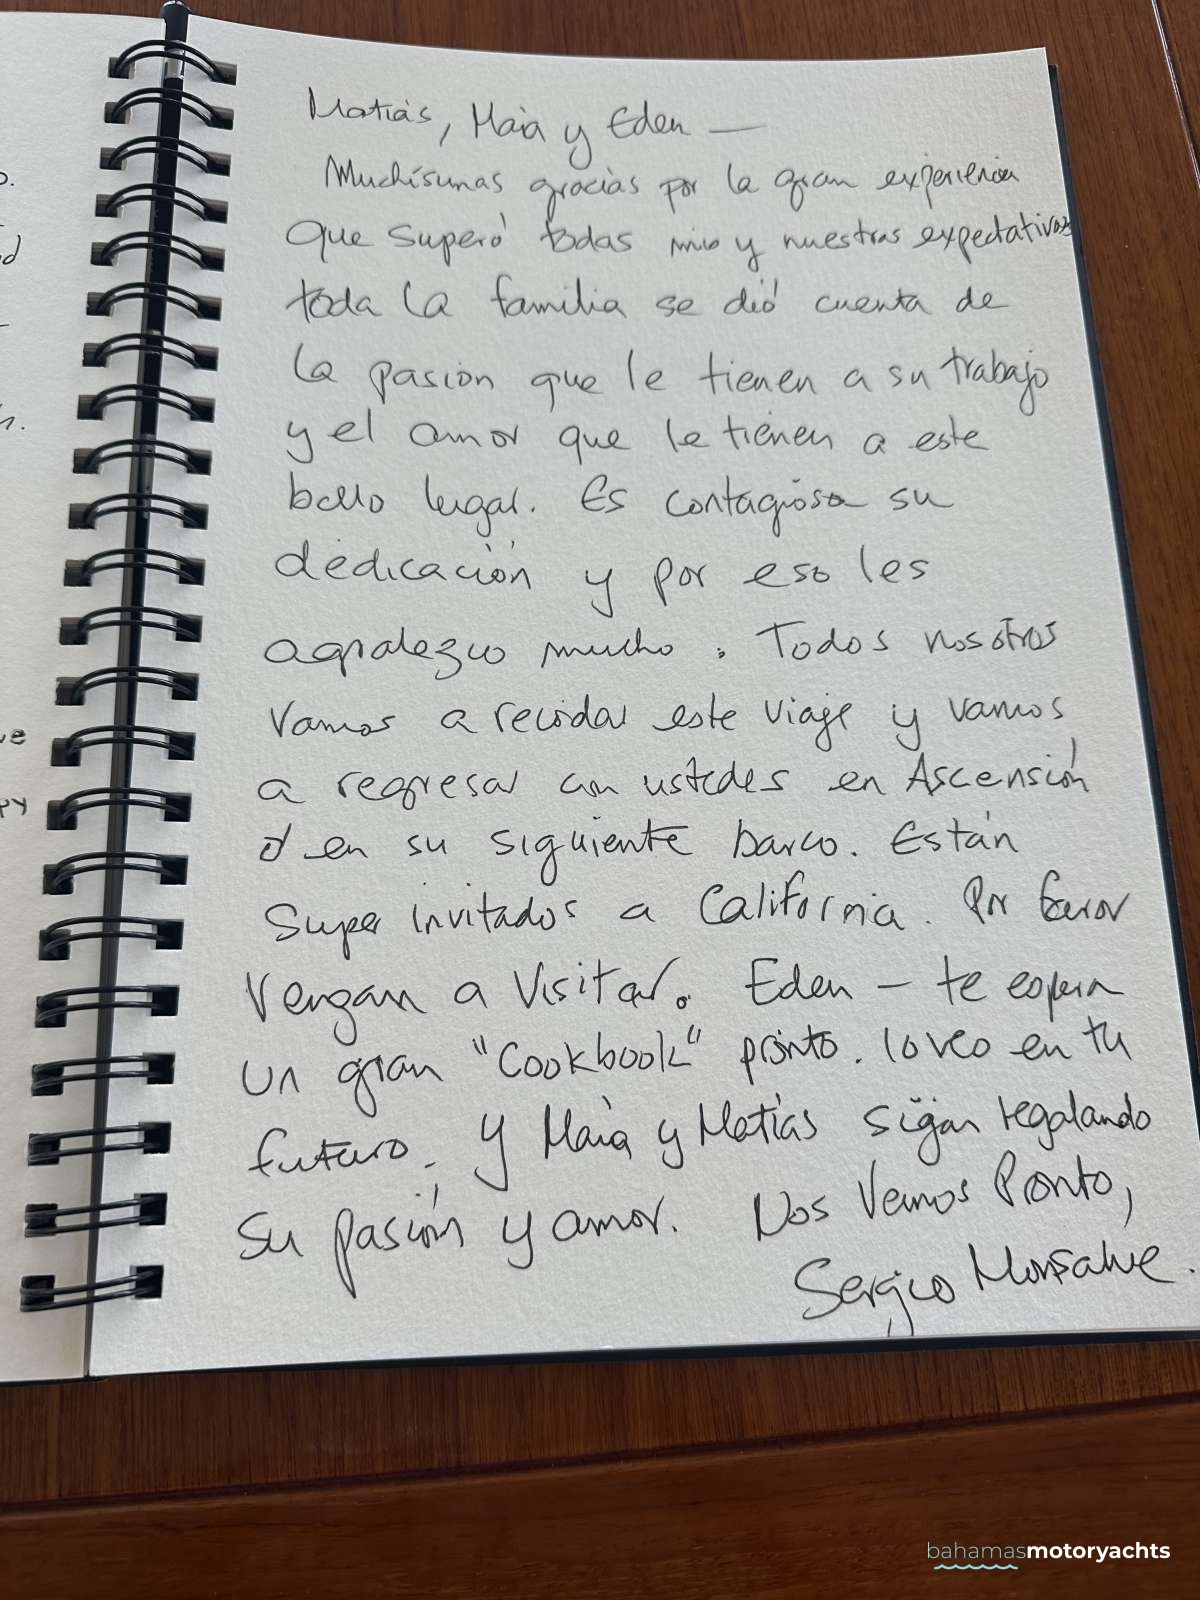 Matías, Maia y Eden —
Muchísimas gracias por la gran experiencia
que superó todas mis y nuestras expectativas
toda la familia se dió cuenta de
la pasión que le tienen a su trabajo
y el amor que le tienen a este
bello lugar. Es contagiosa su
dedicación y por eso les
agradezco mucho. Todos nosotros
vamos a recordar este viaje y vamos
a regresar con ustedes en Ascensión
ó en su siguiente barco. Están
super invitados a California. Por favor
vengan a visitar. Eden — te espera
un gran "Cookbook" pronto. lo veo en tu
futuro. Y Maia y Matías sigan regalando
su pasión y amor. Nos vemos Pronto,
Sergio Monsalve.
bahamasmotoryachts